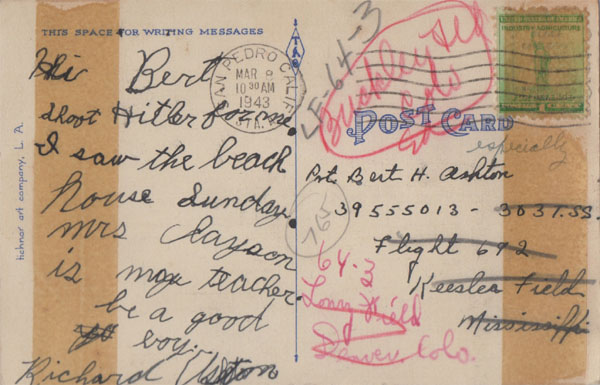 THIS SPACE FOR WRITING MESSAGES
Hi Bert
shoot Hitler for me
I saw the beach
house Sunday
mrs Clayson
is my teacher.
be a good
boy.
Richard Ashton
tichnor art company, L. A.
SAN PEDRO CALIF
MAR 8
10 30 AM
1943
STA.
LF-64-3
Buckley Fld
Colo
POST CARD
especially
Pvt. Bert H. Ashton
39555013 - 3037.SS.
Flight 692
Keesler Field
Mississippi
765
64-3
Lowry Field
Denver, Colo.
INDUSTRY AGRICULTURE
FOR DEFENSE